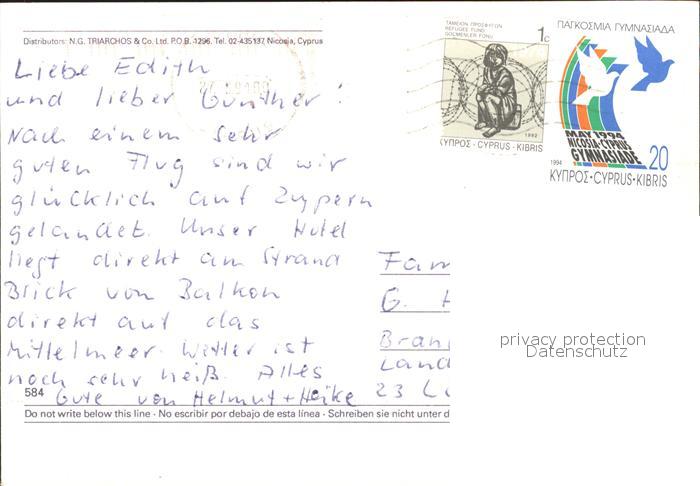 Distributors: N.G. TRIARCHOS & Co. Ltd. P.O.B. 1296. Tel. 02-435137, Nicosia, Cyprus
ΤΑΜΕΙΟΝ ΠΡΟΣΦΥΓΩΝ
REFUGEE FUND
GÖÇMENLER FONU
1c
1992
ΚΥΠΡΟΣ - CYPRUS - KIBRIS
ΠΑΓΚΟΣΜΙΑ ΓΥΜΝΑΣΙΑΔΑ
MAY 1994
NICOSIA-CYPRUS
GYMNASIADE
1994
20
ΚΥΠΡΟΣ·CYPRUS·KIBRIS
Liebe Edith
und lieber Günther!
Nach einem sehr
guten Flug sind wir
glücklich auf Zypern
gelandet. Unser Hotel
liegt direkt am Strand
Blick von Balkon
direkt auf das
Mittelmeer. Wetter ist
noch sehr heiß. Alles
Gute von Helmut + Heike
Fam
G. H
Bran
Land
23 L
privacy protection
Datenschutz
584
Do not write below this line - No escribir por debajo de esta línea - Schreiben sie nicht unter d